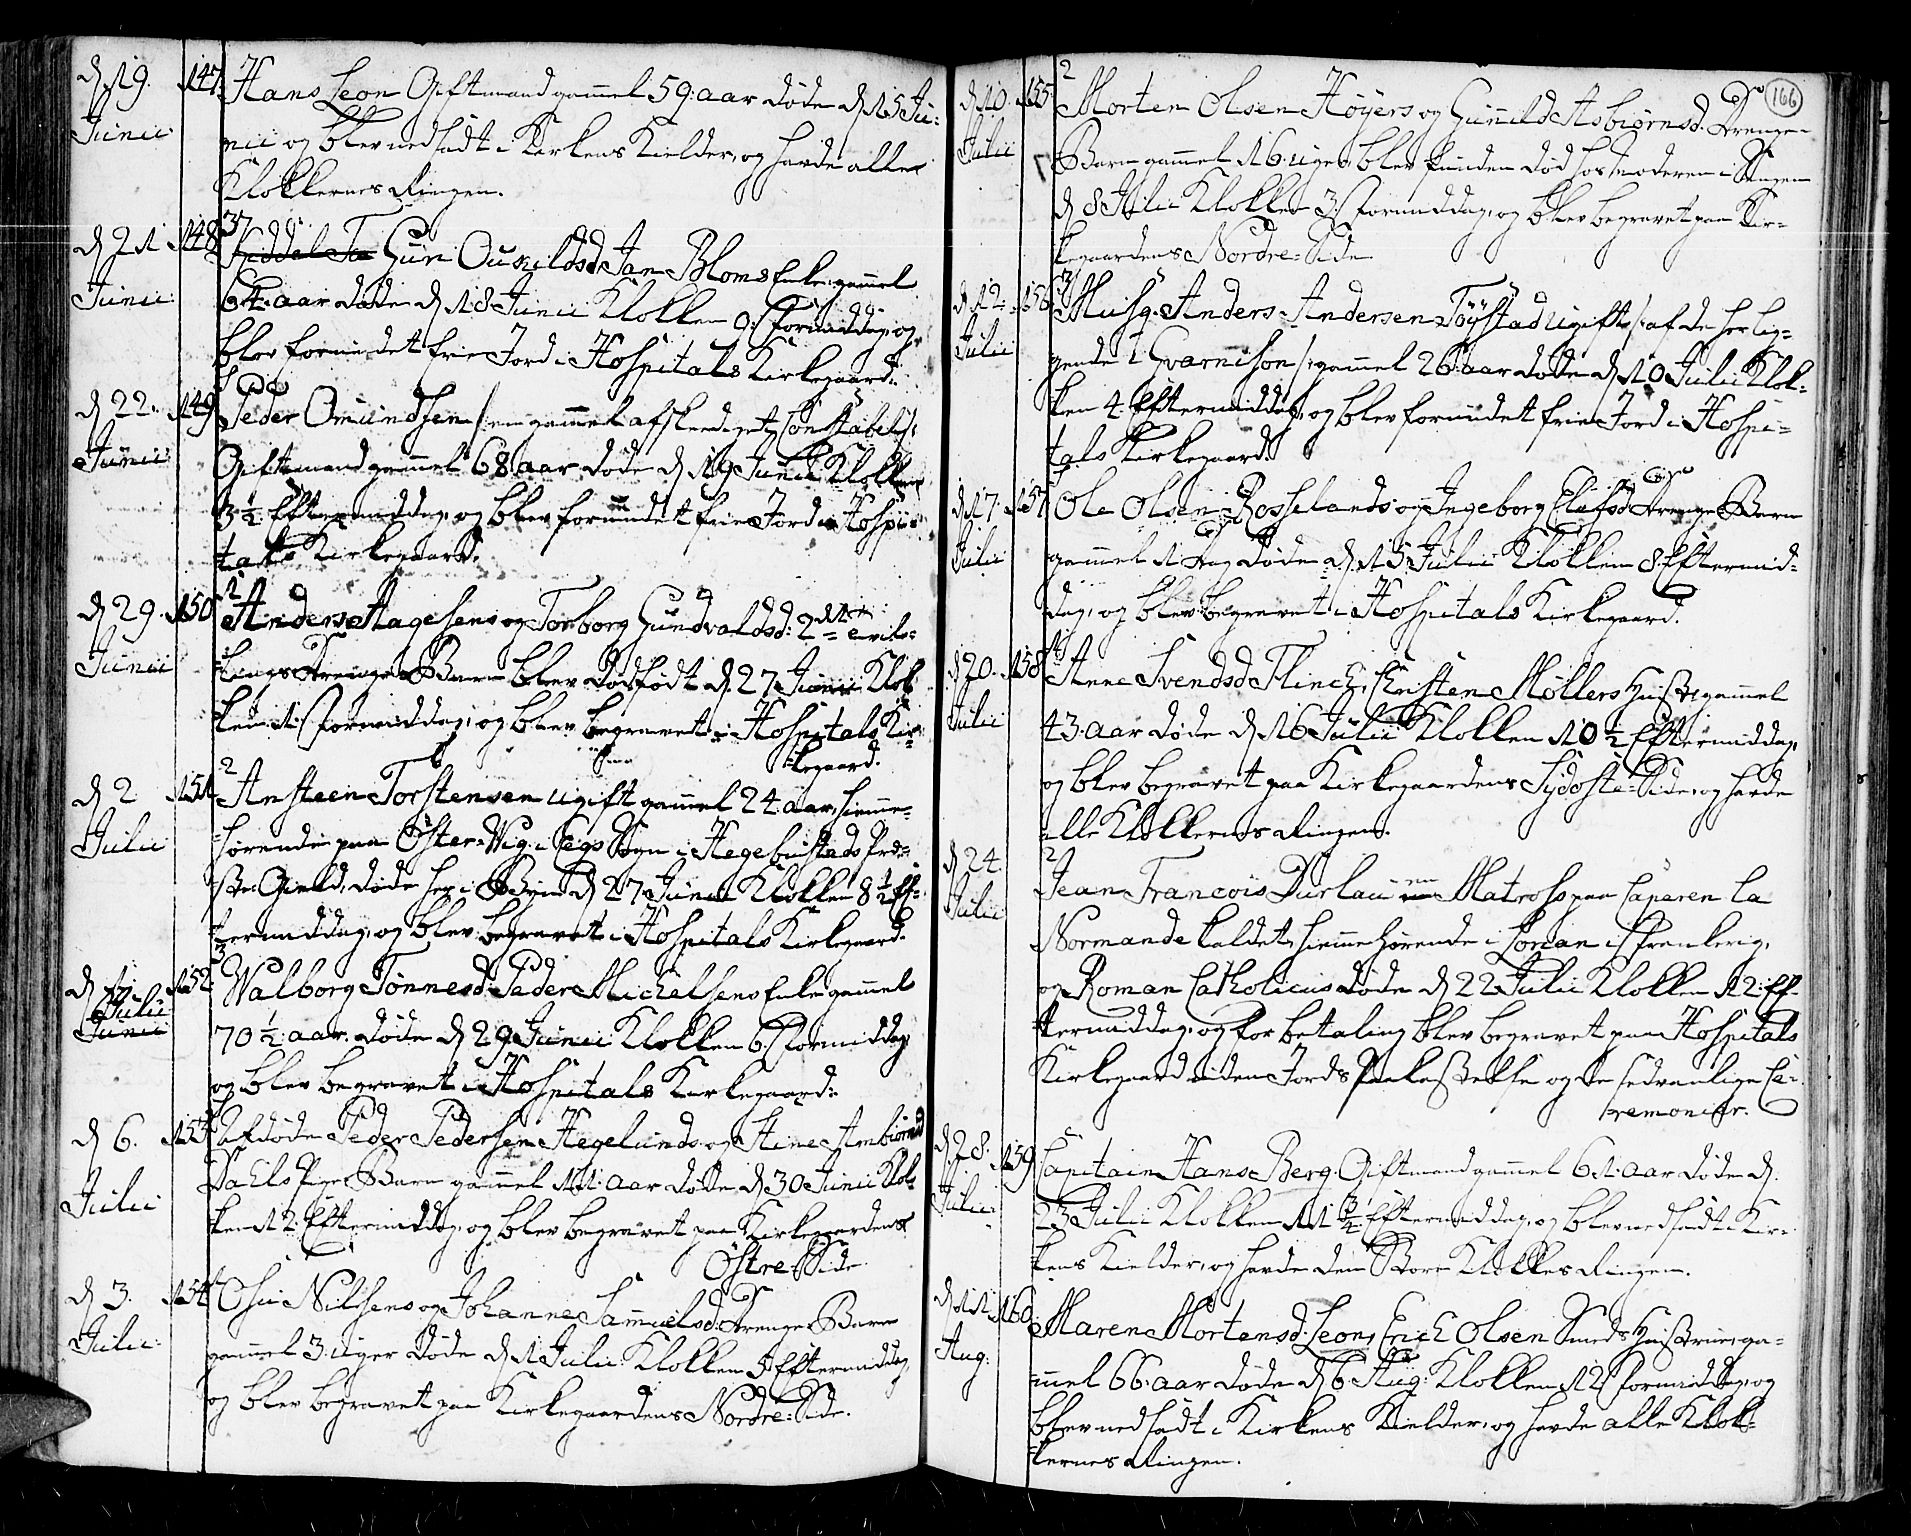 d 19. 147. Hans Leon Giftmand gammel 59: aar døde d 15 Ju:
Junii nii og blev nedsadt i Kirkens Kielder, og havde alle
Klokkernes Ringen.
d 21 148. Gun Ousildsd Jan Bloms Enke gammel
Junii 64: aar døde d 18 Junii Klokken 9: Formiddag, og
blev forundet frie Jord i Hospitals Kirkegaard:
d 22. 149. Peder Omundsen /: en gammel afskeediget
Junii Giftmand gammel 68 aar døde d 19 Junii Klokken
3 1/2 Eftermiddag, og blev forundet frie Jord i Hospi:
tals Kirkegaard.
d 29. 150. Anders Aagesens og Torborg Gundvaldsd: 2
Junii Drenge Barn blev dødfødt d 27 Junii Klok
ken 1 Formiddag, og blev begravet i Hospitals Kir
kegaard.
d 2 151. Ansteen Torstensen ugift gammel 24 aar, hiemme-
Julii hørende paa Øster-Wig i Eegs Sogn i Hegebustads Præ-
ste Gield, døde her i Byen d 27 Junii Klokken 8 1/2 Ef:
termiddag, og blev begravet i Hospitals Kirkegaard.
d 152. Walborg Tønnesd Peder Michelsens Enke gammel
Julii
Junii 70 1/2 aar. døde d 29 Junii Klokken 6 Formiddag
og blev begravet i Hospitals Kirkegaard:
d 6. 153. Afdøde Peder Pedersen Hegelunds og Stine
Julii Dahls Pige Barn gammel 11: aar døde d 30 Junii Klok
ken 12 Eftermiddag, og blev begravet paa Kirkegaardens
Østre Side
d 3. 154. Osui Nilsens og Johanne Samuelsd: Drenge Barn
Julii: gammel 3 uger døde d 1 Julii: Klokken 5 Eftermiddag,
og blev begravet paa Kirkegaardens Nordre-Side.
166
d 10. 155. Morten Olsen Høyers og Gunild Asbiørnsd. Drenge-
Julii Barn gammel 16 uger blev funden død hos Moderen i Sengen
d 8 Julii Klokken 3 Formiddag, og blev begravet paa Kir-
kegaardens Nordre-Side
d 12. 156. Musq. Anders Andersen Tøystad ugift /: af de her lig-
Julii gende i Gvarnison :/ gammel 26 aar døde d 10 Julii Klok-
ken 4 Eftermiddag, og blev forundet frie Jord i Hospi-
tals Kirkegaard.
d 17. 157. Ole Olsen Rosselands og Ingeborg Elefsd Drenge Barn
Julii gammel 1 Dag døde d 15 Julii Klokken 8 Eftermid-
dag, og blev begravet i Hospitals Kirkegaard.
d 20. 158. Anne Svendsd Flinck, Christen Møllers Hustru gammel
Julii 43 aar døde d 16 Julii Klokken 10 1/2 Eftermiddag,
og blev begravet paa Kirkegaardens Sydoste-Side, og havde
alle Klokkernes Ringen.
d 24. Jean Francois Durlau en Matros paa Caperen La
Julii Normande kaldet, hiemmehørende i Lorian i Frankerig,
og Roman Catholicus døde d 22 Julii Klokken 12 Ef-
termiddag, og for betaling blev begravet paa Hospitals
Kirkegaard uden Jords Paakastelse og de sedvanlige Ce-
remonier.
d 28. 159. Capitain Hans Berg Giftmand gammel 61: aar døde d.
Julii 23 Julii Klokken 11 1/2 Eftermiddag, og blev nedsadt i Kir-
kens Kielder, og havde den Store Klokkes Ringen.
d 11 160. Maren Mortensd Leon, Erich Olsen Smeds Hustrue, ga-
Aug: mmel 66: aar døde d 6 Aug: Klokken 12 Formiddag, og
blev nedsadt i Kirkens Kielder, og havde alle Klok-
kernes Ringen.